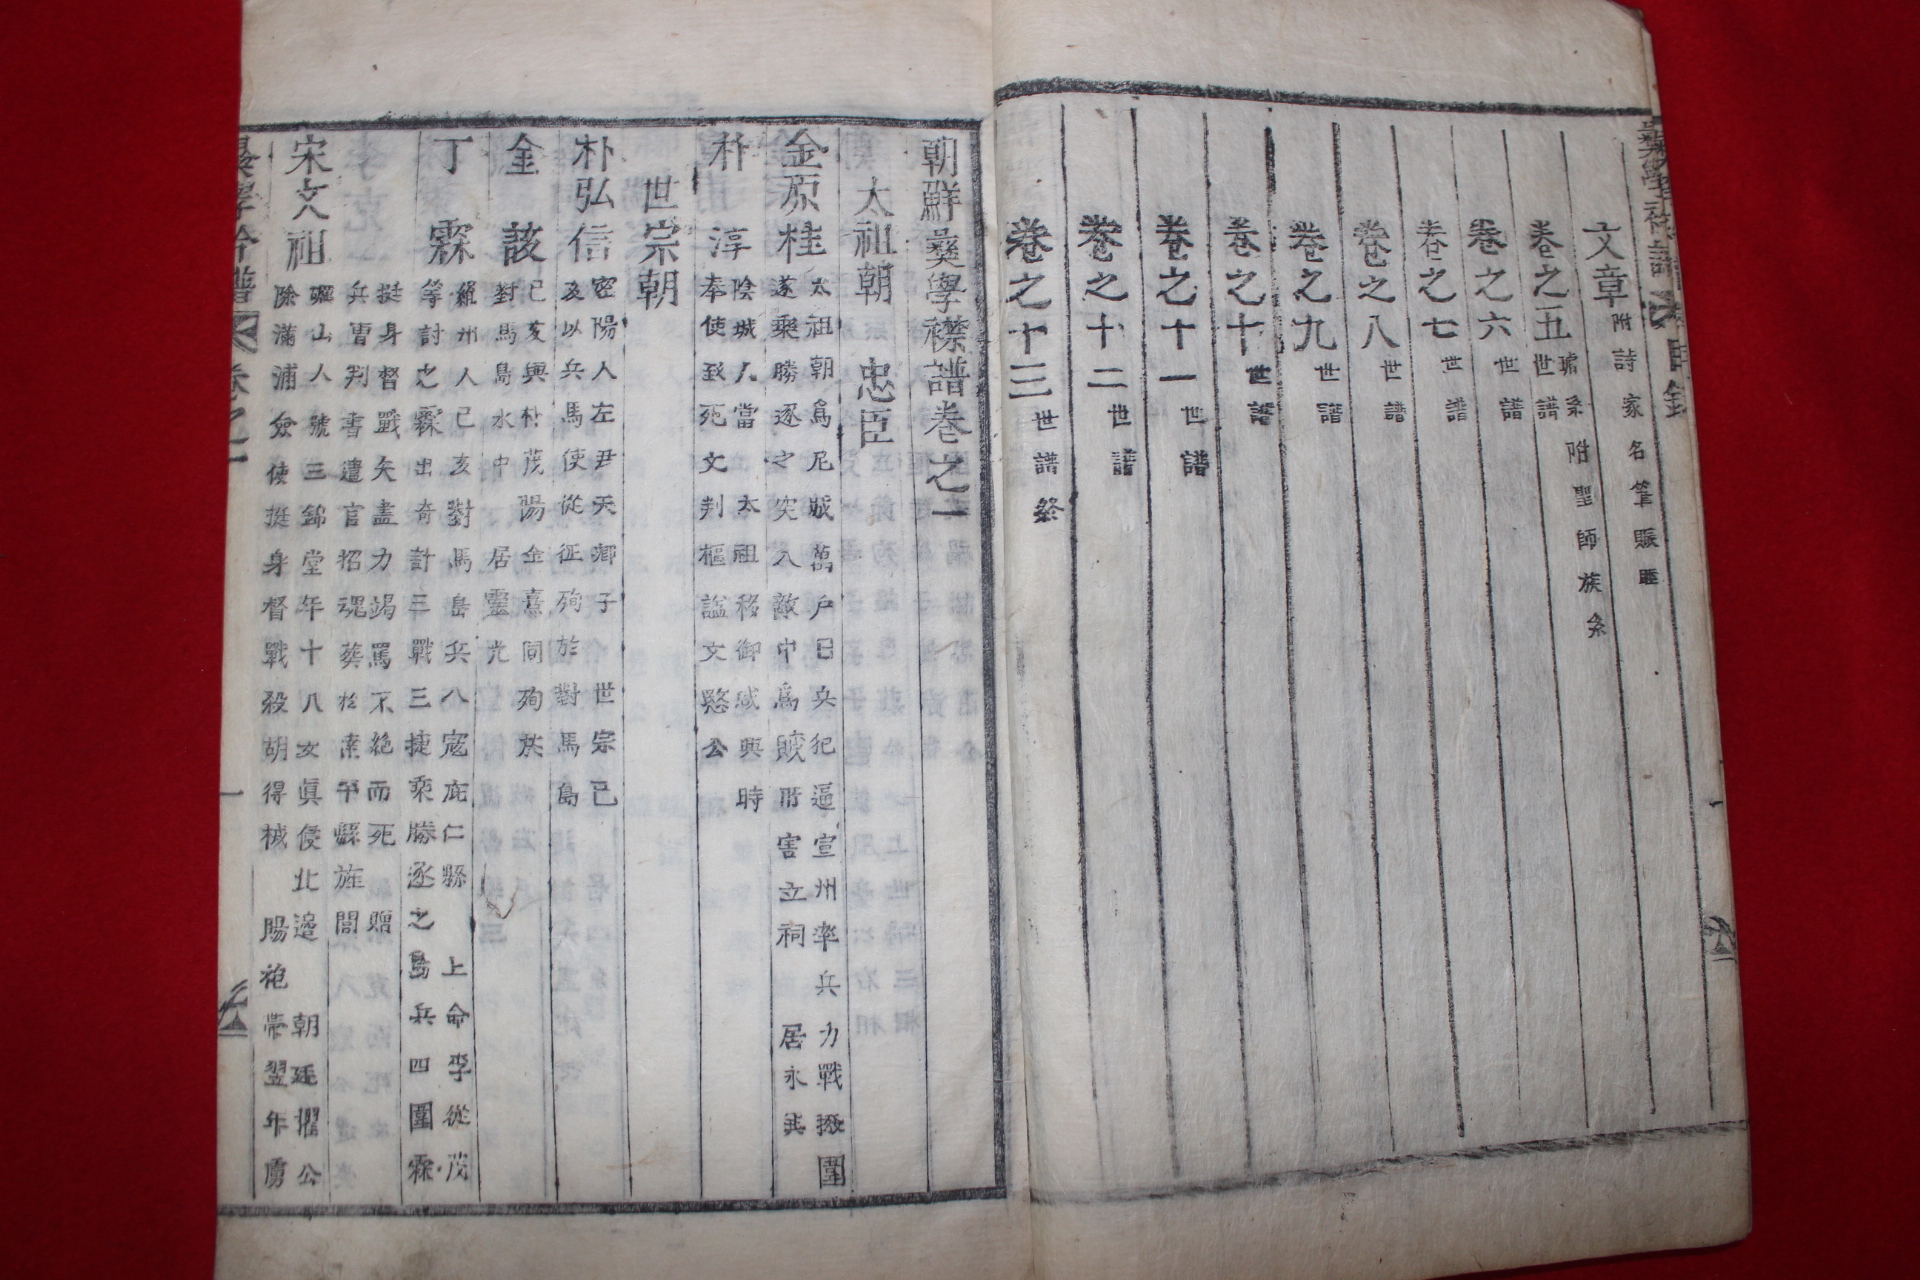 文章附詩家名筆賑
卷之五世譜
璿系附聖師族系
卷之六世譜
卷之七世譜
卷之八世譜
卷之九世譜
卷之十世譜
卷之十一世譜
卷之十二世譜
卷之十三世譜
朝鮮彙學襟譜卷之一
太祖朝 忠臣
金原桂
太祖朝爲尼城萬戶日兵犯逼宣州率兵力戰撥圍
遂乘勝逐之突入敵中爲賊所害立祠 居永
朴淳
陰城人當 太祖移御咸興時
奉使致死文判樞諡文愍公
世宗朝
朴弘信
密陽人左尹天卿子 世宗己
亥以兵馬使從征殉於對馬島
金該
己亥與朴茂陽金熹同殉
對馬島水中 居靈光
丁霖
羅州人己亥對馬島兵入寇庇仁縣 上命李從茂
等討之霖出奇計三戰三捷乘勝逐之島兵四圍霖
挺身督戰矢盡力竭罵不絕而死 贈
兵曹判書遣官招魂葬於 縣旌閭
宋文祖
礪山人號三錦堂年十八女眞侵北邊 朝廷擢公
除滿浦僉使挺身督戰殺胡得械 賜袍帶翌年虜
卷之一
一